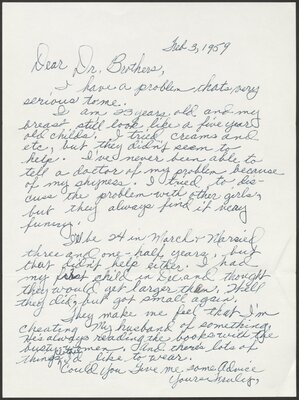 Feb 3, 1959
Dear Dr. Brothers,
I have a problem, thats very
serious to me.
I am 23 years old and my
breast still look like a five year
old childs. I tried creams and
etc, but they didn't seem to
help. I've never been able to
tell a doctor of my problem because
of my shyness. I tried to dis-
cuss the problem with other girls,
but they always find it very
funny.
I'll be 24 in March & Married
three and one-half years, but
that didn't help either. I had
my first child in Dec. and thought
they would get larger then. Well
they did, but got small again.
They make me feel that I'm
cheating my husband of something.
He's always reading the books with the
busty women. And, there's lots of
things I'd like to wear.
Could you give me some advice
Yours truly,